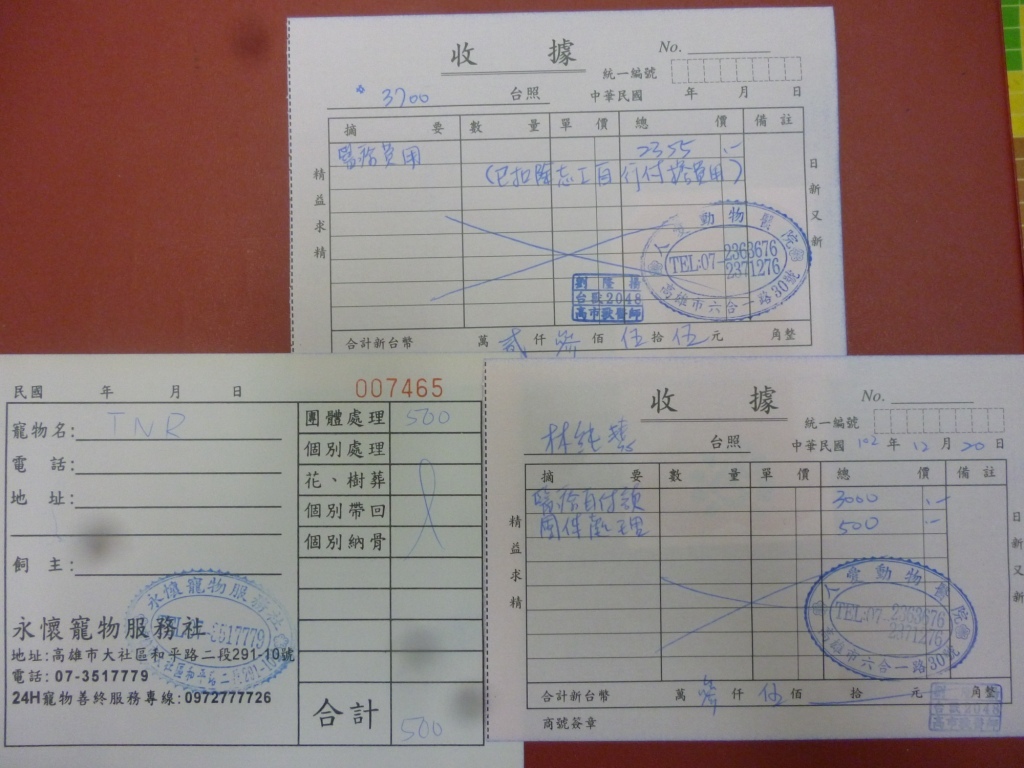 收 據
No.
統一編號
3700 台照
中華民國 年 月 日
摘 要 數 量 單 價 總 價 備 註
醫務費用 2355
(已扣除志工自行付醫費用)
精益求精
日新又新
動物醫院
TEL:07-2363676
2371276
高雄市六合一路30號
劉隆揚
台獸2048
高市獸醫師
合計新台幣 萬 貳 仟 參 佰 伍 拾 伍 元 角整
民國 年 月 日
007465
寵物名: TNR
電 話:
地 址:
飼 主:
團體處理 500
個別處理
花、樹葬
個別帶回
個別納骨
合計 500
永懷寵物服務社
永懷寵物服務社
地址:高雄市大社區和平路二段291-10號
電話: 07-3517779
24H寵物善終服務專線:0972777726
收 據
No.
統一編號
台照
中華民國 102 年 12 月 20 日
摘 要 數 量 單 價 總 價 備 註
醫療自付額 3000
團体處理 500
精益求精
日新又新
動物醫院
TEL:07-2363676
2371276
高雄市六合一路30號
合計新台幣 萬 參 仟 伍 佰 拾 元 角整
台獸2048
高市獸醫師
商號簽章